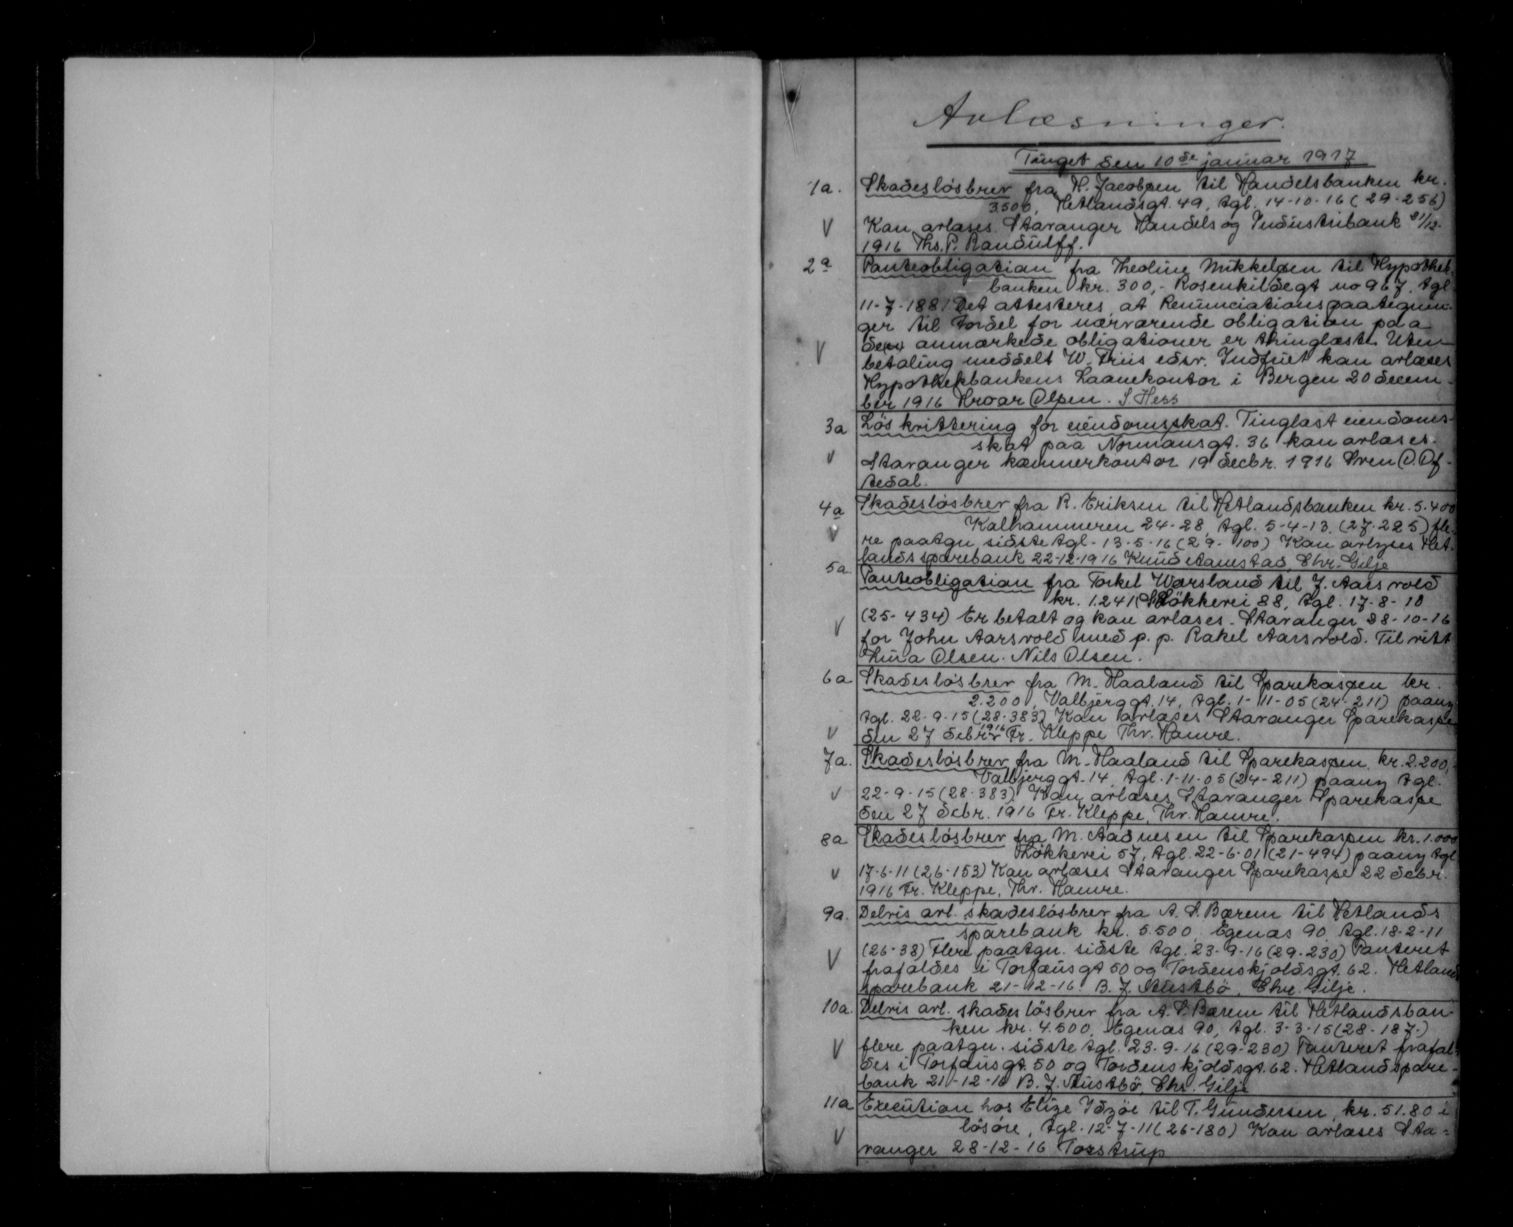 Avlæsninger.
Tinget den 10de januar 1917
1a. Skadesløsbrev fra H. Jacobsen til Handelsbanken kr.
3500, Hetlandsgt. 49, tgl. 14-10-16 (29-256)
V Kan avlæses Stavanger Handels og Industribank 21/12-
1916 Ths. P. Randulff.
2a Panteobligation fra Theoline Mikkelsen til Hypothek-
banken kr. 300,- Rosenkildegt no 967. tgl.
11-7-1881 Det attesteres, at Renunciationspaategnin-
ger til fordel for nærværende obligation paa
V anmærkede obligationer er thinglæste. Uten
betaling meddelt W. Friis edsv. Indfriet kan avlæses
Hypothekbankens Laanekontor i Bergen 20 decem-
ber 1916 Hroar Olsen. S Hess
3a Løskvittering for eiendomsskat. Tinglæst eiendoms-
skat paa Normansgt. 36 kan avlæses.
V Stavanger kæmnerkontor 19 decbr. 1916 Sven O. Of-
tedal.
4a Skadesløsbrev fra R. Eriksen til Hetlandsbanken kr. 5.400
Kalhammeren 24-28, tgl. 5-4-13. (27-225) fle-
V re paategn sidste tgl. 13-5-16 (29-100) Kan avlyses Het-
lands sparebank 22-12-1916 Knud Stamstad, Chr. Gilje
5a Panteobligation fra Torkel Warsland til J. Aarsvold
kr. 1.241 Støkkevei 88, tgl. 17-8-10
(25-434) Er betalt og kan avlæses. Stavanger 28-10-16
V for John Aarsvold med p. p. Rakel Aarsvold. Til vitt
Thina Olsen. Nils Olsen.
6a Skadesløsbrev fra M. Haaland til Sparekassen kr.
2.200, Valbjerggt. 14, tgl. 1-11-05 (24-211) paany
tgl. 22-9-15 (28-383) Kan avlæses Stavanger Sparekasse
V den 27 decbr 1916 Fr. Kleppe Thv. Hamre.
7a. Skadesløsbrev fra M. Haaland til Sparekassen kr. 2.200,-
Valbjerggt. 14, tgl. 1-11-05 (24-211) paany tgl.
V 22-9-15 (28-383) Kan avlæses Stavanger Sparekasse
den 27 dcbr. 1916 Fr. Kleppe, Thv. Hamre.
8a Skadesløsbrev fra M. Aadnesen til Sparekassen kr. 1.000
Støkkevei 57, tgl. 22-6-01 (21-494) paany tgl
V 17-6-11 (26-153) Kan avlæses Stavanger Sparekasse 22 dcbr.
1916 Fr. Kleppe, Thv. Hamre.
9a. Delvis avl. skadesløsbrev fra A. S. Bærem til Hetlands
sparebank kr. 5.500 Egenæs 90, tgl. 18-2-11
V (26-38) Flere paategn. sidste tgl. 23-9-16 (29-230) Panteret
frafaldes i Torfæusgt 50 og Tordenskjoldsgt. 62. Hetland
sparebank 21-12-16. B. J. Austbø, Chr. Gilje.
10a. Delvis avl. skadesløsbrev fra A. S. Bærem til Hetlandsban-
ken kr. 4.500, Egenæs 90, tgl. 3-3-15 (28-187.)
V flere paategn. sidste tgl. 23-9-16 (29-230) Panteret frafal-
des i Torfæusgt. 50 og Tordenskjoldsgt. 62. Hetlandspare-
bank 21-12-16 B. J. Austbø, Chr. Gilje
11a Execution hos Elize Idzøe til T. Gundersen, kr. 51.80 i
løsøre, tgl. 12-7-11 (26-180) Kan avlæses Sta-
V vanger 28-12-16 Torstrup